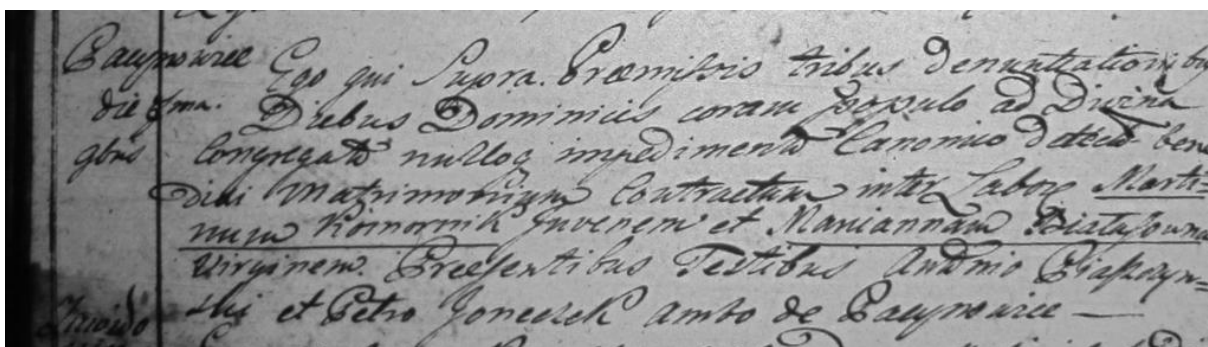 Pacynowice Ego qui Supra. Præmissis tribus denuntiationibus
die 7ma. Diebus Dominicis coram populo ad Divina
9bris Congregato nulloq impedimento Canonico detecto bene
dixi Matrimonium Contractum inter Labor. Marti=
num Komornik Juvenem et Mariannam
Virginem. Præsentibus Testibus Antonio Piaskozyn=
ski et Petro Joneczek ambo de Pacynowice —